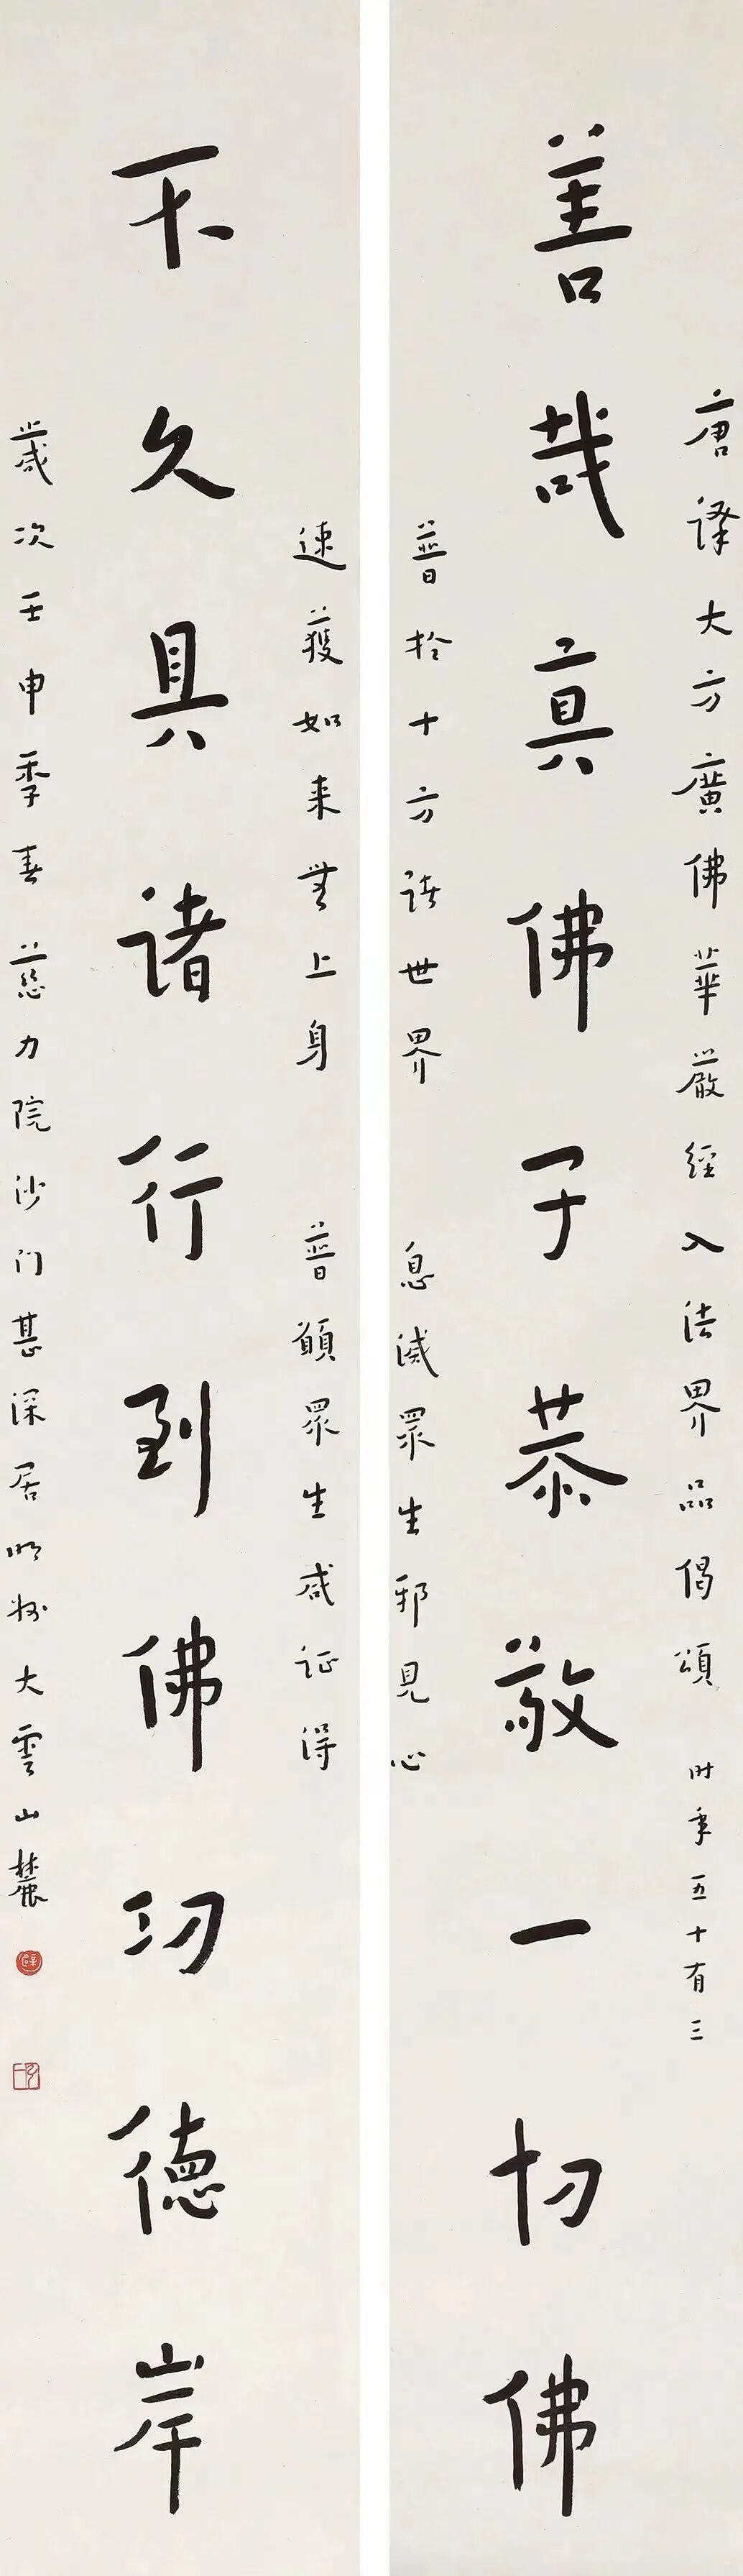 唐譯大方廣佛華嚴經入法界品偈頌 時年五十有三
善哉真佛子恭敬一切佛
普於十方諸世界 息滅眾生邪見心
速獲如来無上身 普願眾生咸証得
不久具諸行到佛功德岸
歲次壬申季春 慈力院沙門甚深居明州大雲山麓